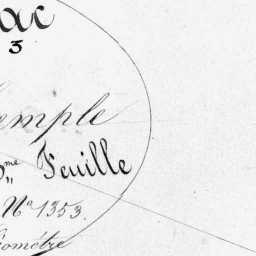 ac
3
emple
me Feuille
Nº 1353.
éomètre